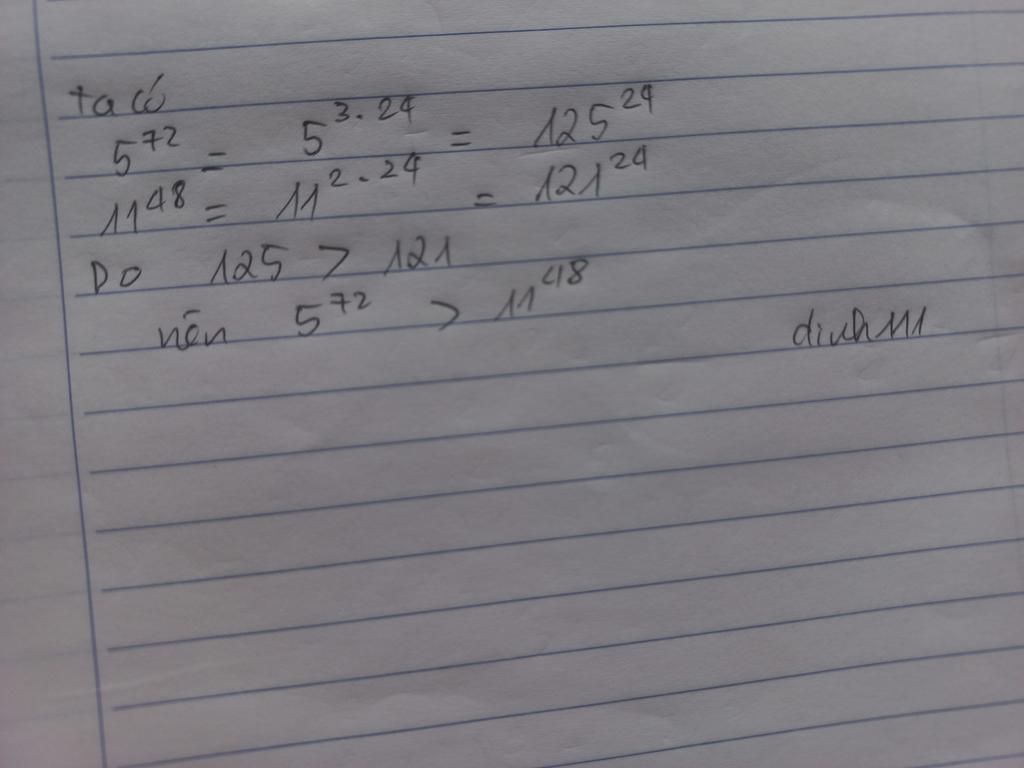 ta có
5^72 = 5^3.24 = 125^24
11^48 = 11^2.24 = 121^24
Do 125 > 121
nên 5^72 > 11^48 dinh111